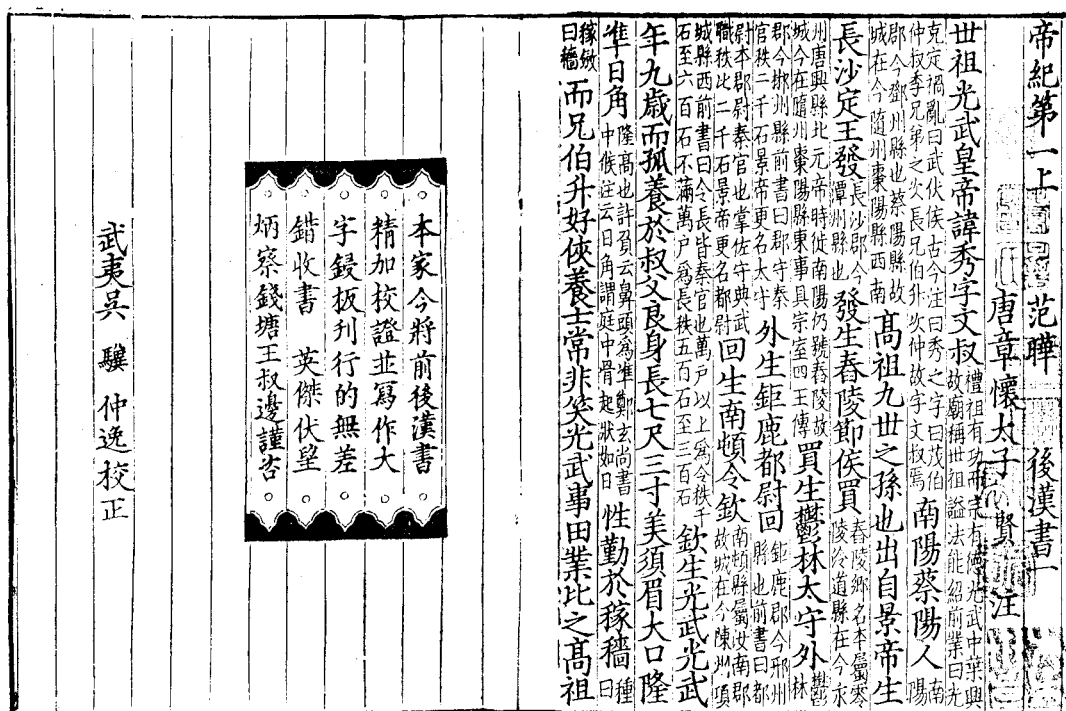 帝紀第一上 范曄 後漢書一
唐章懷太子賢注
世祖光武皇帝諱秀字文叔禮祖有功而宗有德光武中葉興故廟稱世祖謚法能紹前業曰光
克定禍亂曰武伏侯古今注曰秀之字曰茂伯仲叔季兄弟之次長兄伯升次仲故字文叔焉南陽蔡陽人南陽
郡今鄧州縣也蔡陽縣故城在今随州棗陽縣西南髙祖九世之孫也出自景帝生
長沙定王發長沙郡今潭州縣也發生舂陵節侯買舂陵鄉名本屬零陵泠道縣在今永
州唐興縣北元帝時徙南陽仍號舂陵故城今在隨州棗陽縣東事具宗室四王傳買生鬱林太守外鬱林
郡今郴州縣前書曰郡守秦官秩二千石景帝更名太守外生鉅鹿都尉回鉅鹿郡今邢州縣也前書曰都
尉本郡尉秦官也掌佐守典武職秩比二千石景帝更名都尉回生南頓令欽南頓縣屬汝南郡故城在今陳州項
城縣西前書曰令長皆秦官也萬户以上爲令秩千石至六百石不滿萬户爲長秩五百石至三百石欽生光武光武
年九歳而孤養於叔父良身長七尺三寸美須眉大口隆
準日角隆髙也許負云鼻頭爲準鄭玄尚書中候注云日角謂庭中骨起狀如日性勤於稼穡種曰
稼斂曰穡而兄伯升好俠養士常非笑光武事田業比之髙祖
本家今將前後漢書
精加校證並寫作大
字鋟板刋行的無差
錯收書 英傑伏望
炳察錢塘王叔邊謹咨
武夷吴 驥 仲逸校正